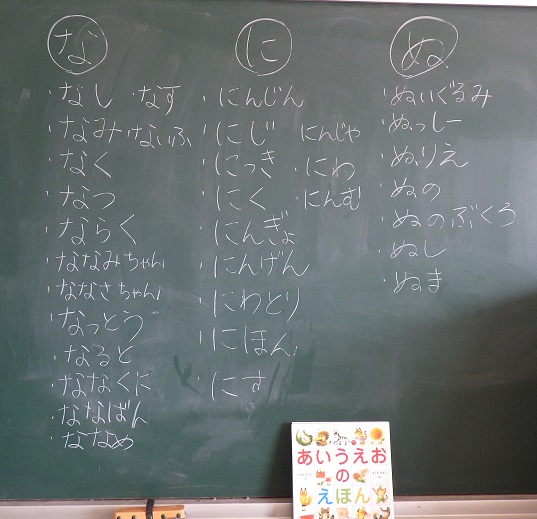 な
・なし ・なす
・なみ ・ないふ
・なく
・なつ
・ならく
・ななみちゃん
・ななさちゃん
・なっとう
・なると
・ななくに
・ななばん
・ななめ
に
・にんじん
・にじ ・にんじゃ
・にっき ・にわ
・にく ・にんむ
・にんぎょ
・にんげん
・にわとり
・にほん
・にす
ぬ
・ぬいぐるみ
・ぬっしー
・ぬりえ
・ぬの
・ぬのぶくろ
・ぬし
・ぬま
あいうえお
の
えほん